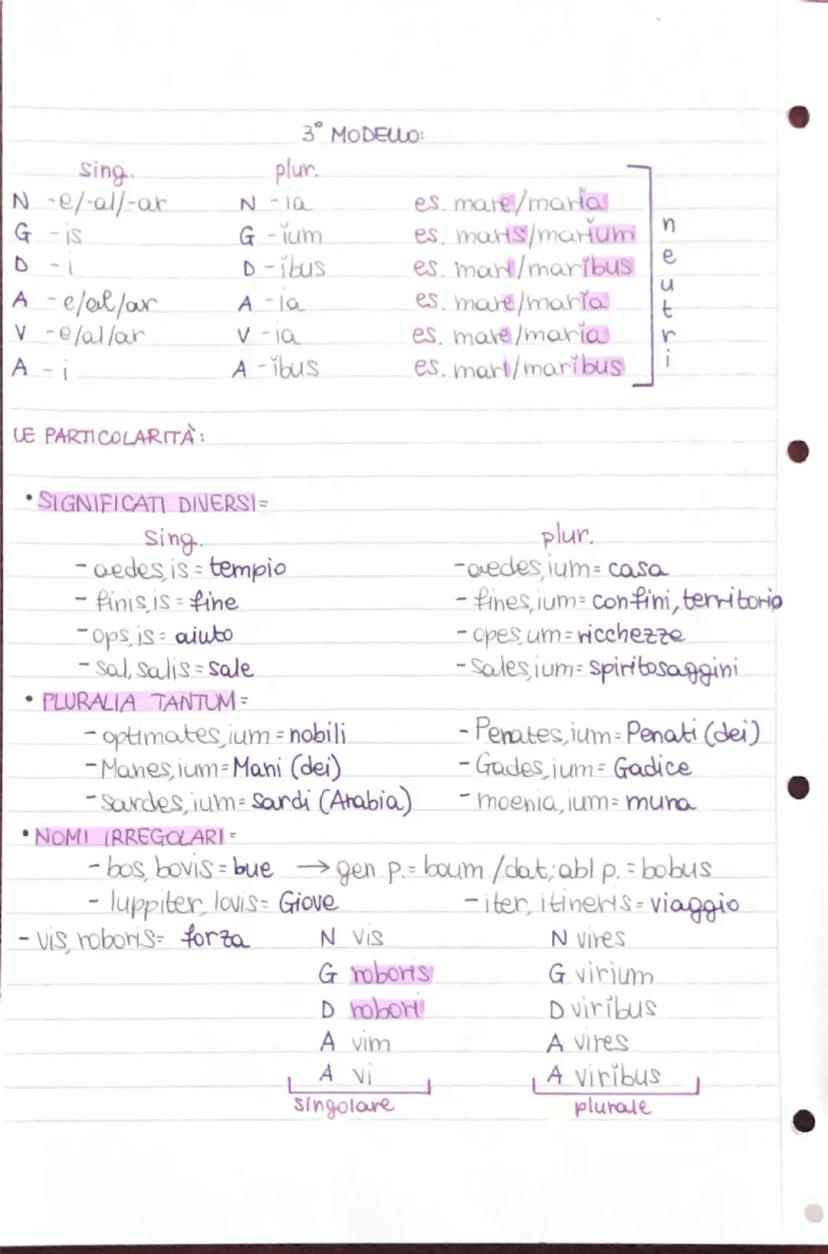 3° MODELLO:
sing. plur.
N -e/-al/-ar N -ia es. mare/marĭa
G -is G -ĭum es. maris/marĭum
D -i D -ĭbus es. mari/marĭbus
A -e/al/ar A -ia es. mare/marĭa
V -e/al/ar V -ia es. mare/marĭa
A -i A -ĭbus es. mari/marĭbus
neutri
LE PARTICOLARITÀ:
• SIGNIFICATI DIVERSI=
sing. plur.
- aedes,is = tempio - aedes,ium = casa
- finis,is = fine - fines,ium = confini, territorio
- ops,is = aiuto - opes,um = ricchezze
- sal, salis = sale - sales,ium = spiritosaggini
• PLURALIA TANTUM=
- optimates,ium = nobili - Penates,ium = Penati (dei)
- Manes,ium = Mani (dei) - Gades,ium = Gadice
- sardes,ium = sardi (Arabia) - moenia,ium = mura
• NOMI IRREGOLARI=
- bos, bovis = bue → gen p. = boum / dat; abl p. = bobus
- Iuppiter, Iovis = Giove - iter, itineris = viaggio
- vis, roboris = forza N vis N vires
G roboris G virium
D robori D virĭbus
A vim A vires
A vi A virĭbus
singolare plurale